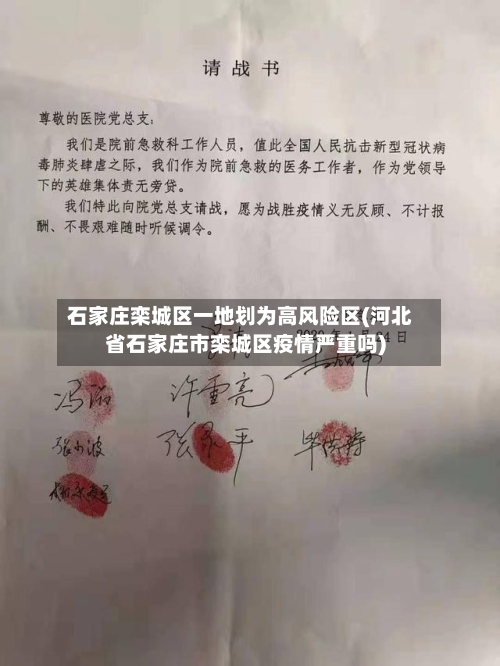 请战书
尊敬的医院党总支：
我们是院前急救科工作人员，值此全国人民抗击新型冠状病
毒肺炎肆虐之际，我们作为院前急救的医务工作者，作为党领导
下的英雄集体责无旁贷。
我们特此向院党总支请战，愿为战胜疫情义无反顾、不计报
酬、不畏艰难随时听候调令。
石家庄栾城区一地划为高风险区(河北
省石家庄市栾城区疫情严重吗)
许雪亮
张小波